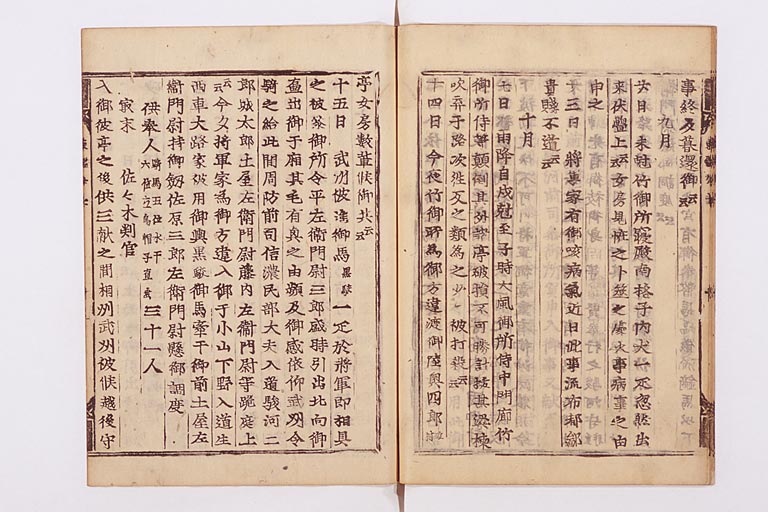 事終及昏還御云々
九月
廿日 未尅竹御所寝殿南格子内犬一疋忽然出
来伏盤上云々女房見怪之卜筮之處火事病事之由
申之
廿三日 將軍家有御咳病氣近日此事流布都鄙
貴賤不遁云々
十月
七日 雷雨降自戌尅至子時大風御所侍中門廊竹
御所侍等顚倒其外諸亭破損不可勝計抜其梁棟
吹弃于路次往反之類為之少々被打殺云々
十四日 今夜竹御所為御方違渡御陸奥四郎
亭女房數輩候御共云々
十五日 武州被進御馬黒駮一疋於將軍即相具
之被参御所令平左衞門尉三郎盛時引出北向御
壷出御于廂其毛有興之由頻及御感依仰武州令
騎之給此間周防前司信濃民部大夫入道駿河二
郎城太郎土屋左衞門尉藤内左衞門尉等跪庭上
云々今夕將軍家為御方違入御于小山下野入道生
西車大路家被用御輿黒駮御馬牽于御前土屋左
衞門尉持御釼佐原三郎左衞門尉懸御調度
供奉人 騎馬五位水干六位立烏帽子直垂 三十一人
最末 佐々木判官
入御彼亭之後供三献之間相州武州被候越後守